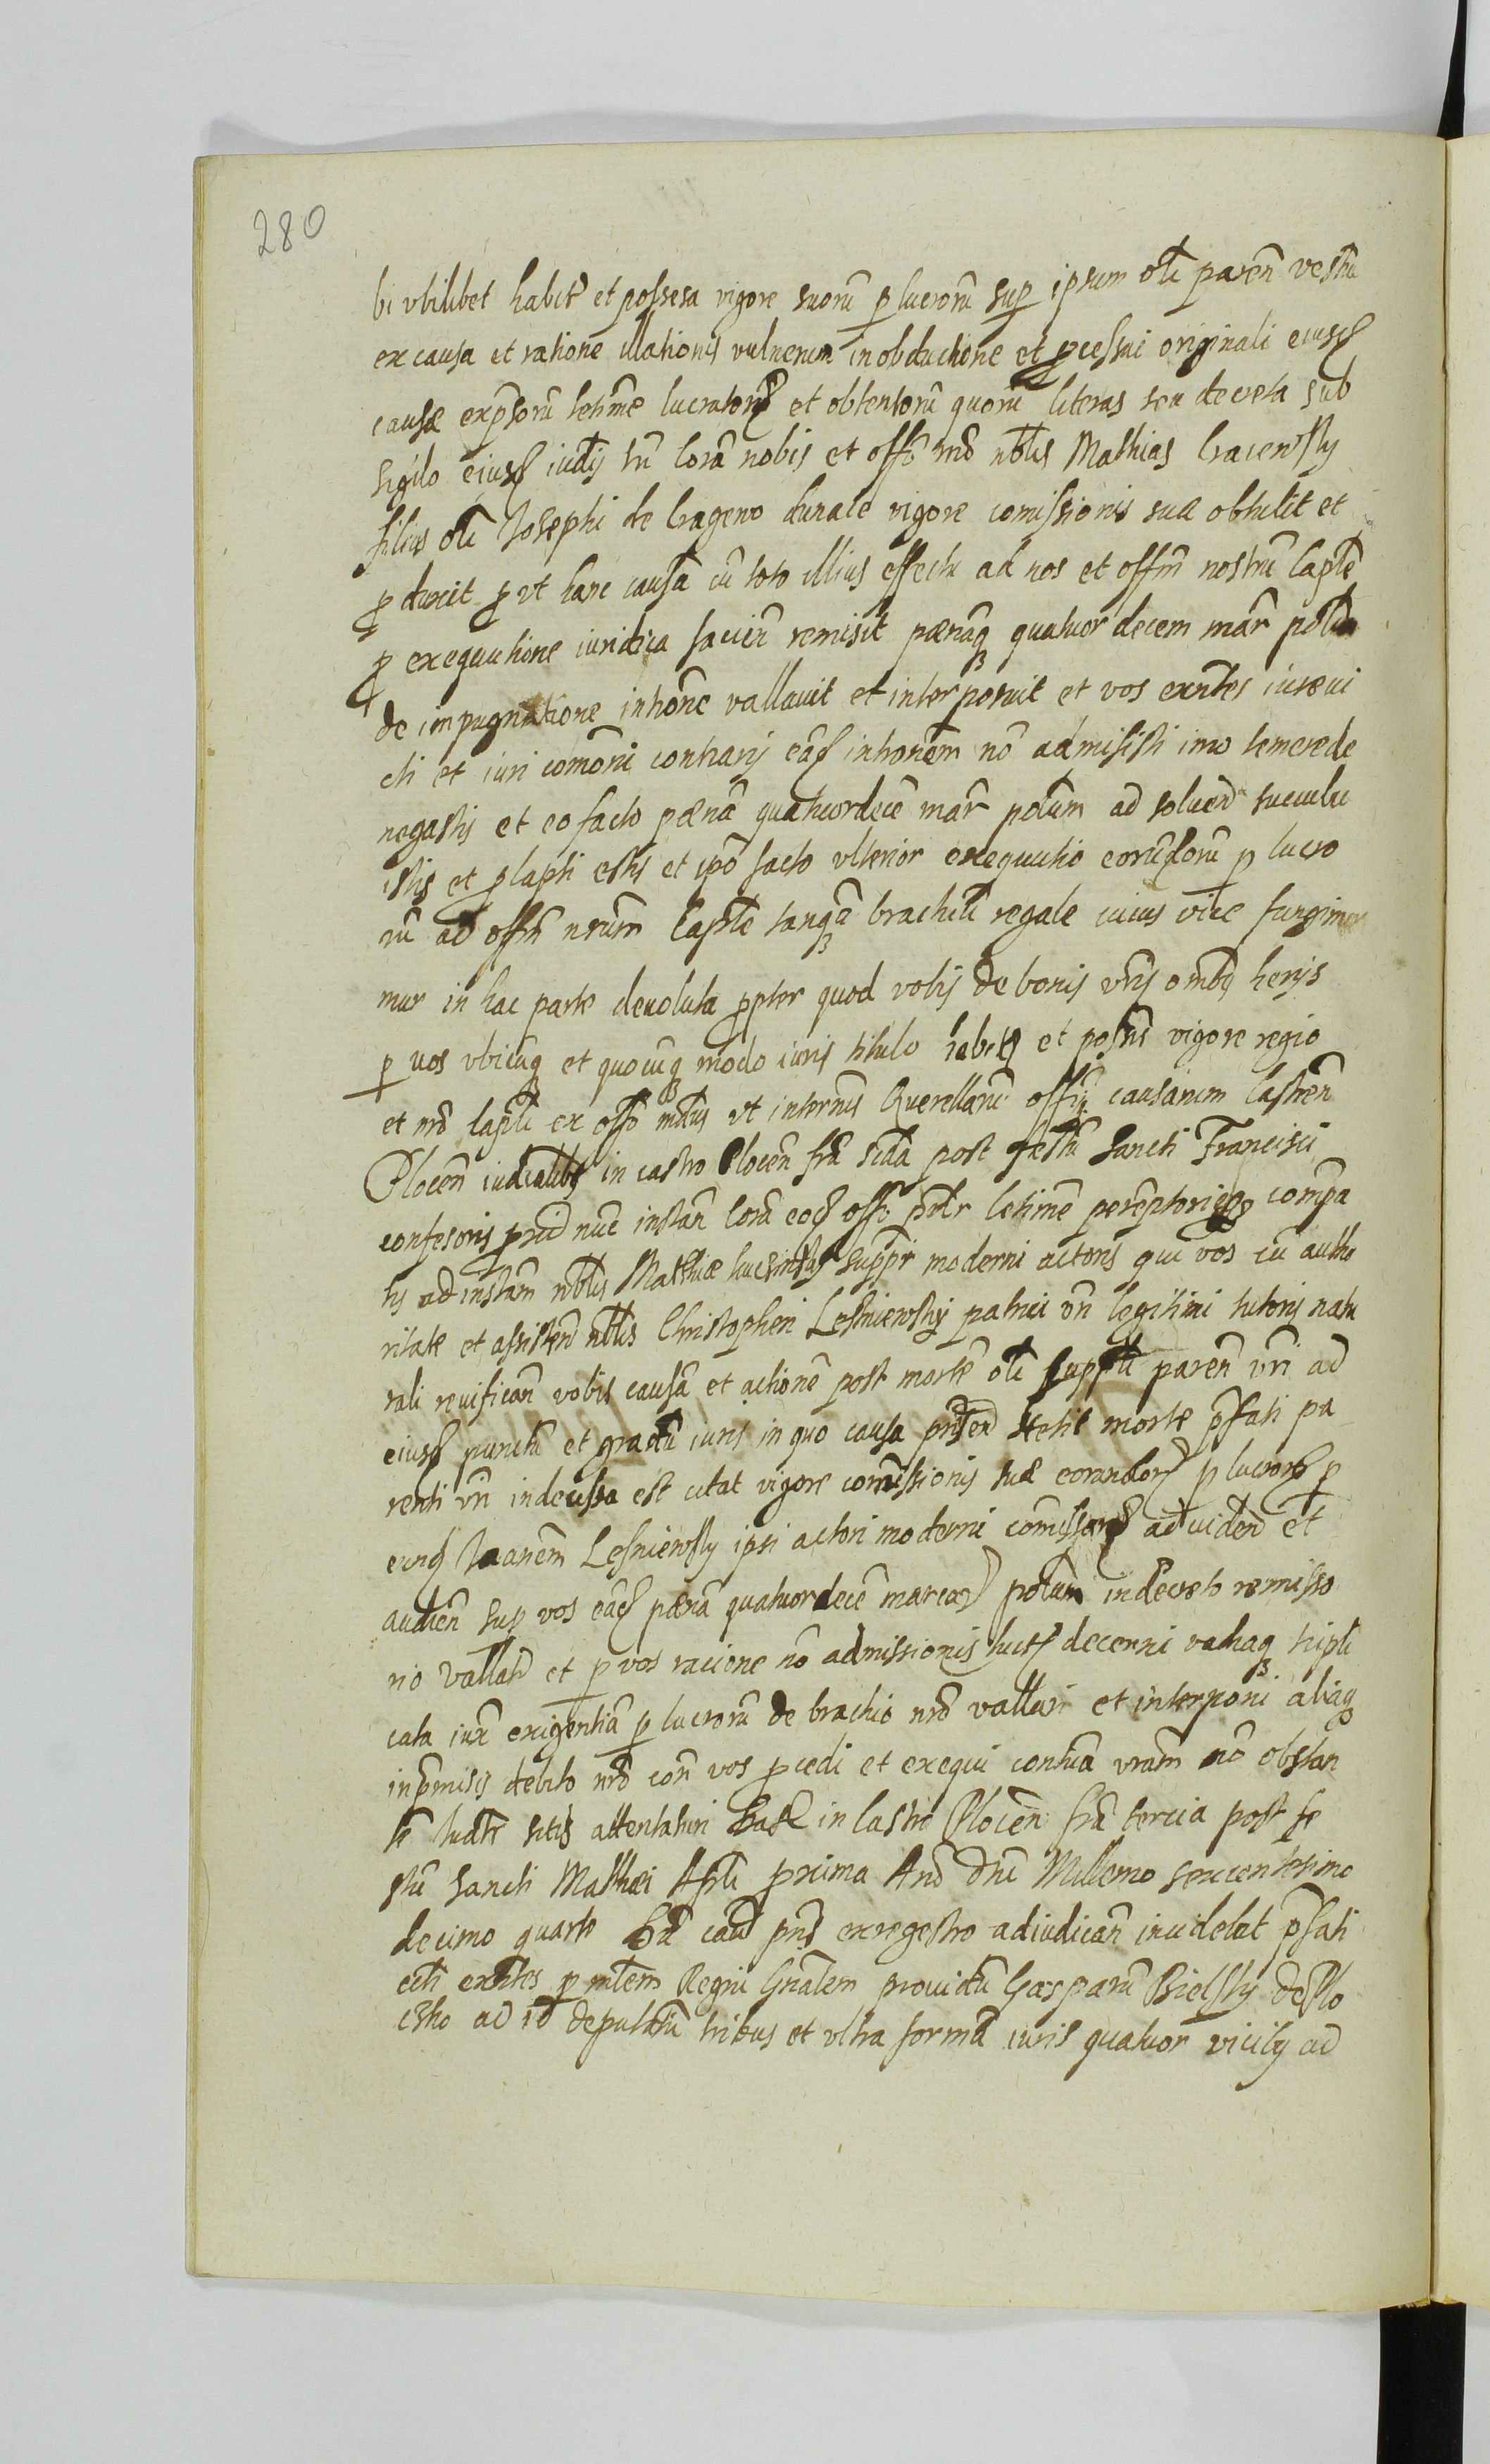 280
bi vbilibet habit et possesa vigore suorũ p lucrorũ sup ipsum olĩ paren̄ vestrũ
ex causa et ratione illationis vulnerum in obductione et pcessui originali eiusd
causæ exp̄sorũ letime lucrator et obtentorũ quorũ literas seu decreta sub
sigilo eiusd iudij tñ Corã nobis et offõ nrõ nblis Mathias
filius olĩ Josephi de vigore comissionis suæ obtulit et
pduxit put hanc causã cũ toto illius effectu ad nos et offm̃ nostrũ Capłe
p exequutione iuridica facien̄ remisit pænãq quatuor decem mar̃ polm
de impugnatione intione vallauit et interposuit et vos exñtes
cti et iuri comõni contrarij eãd intionem nõ admisisti imo temere de
negastis et eo facto pænã quatuordecẽ mar̃ polum ad soluen̄ succubu
istis et plapsi estis et ipõ facto vlterior exequutio eorũdorũ p lucro
rũ ad offm̃ nrum Capłe tanqã brachiũ regale cuius vice fungimur
mur in hac parte deuoluta ppter quod vobis de bonis vris ombq herijs
p vos vbicũq et quocũq modo iuris titulo habit et possis vigore regio
et nrõ Capłi ex offõ mtus vt in termis Querellarũ offij causarum Castren̄
Plocen̄ iudicialibs in castro Plocen̄ fra scda post festũ Sancti Francisci
confesoris pxid nũc instan̄ Corã eod offõ pntr letime peremptorieq compa
tis ad instam nblis Mathiæ supp̃r moderni actoris qui vos cũ autho
ritate et assisten̄ nblis Christopheri Lesniewsky patrui vñ legitimi tutoris natu
rali reuifican̄ vobis causã et actionẽ post mortẽ olĩ supptĩ paren̄ vrĩ ad
eiusd punctũ et gradũ iuris in quo causa pñsen̄ stetit morte p̄fati pa
renti vrĩ indecissa est citat vigore comissionis suæ eorundor p lucror p
eund Joanem Lesniewsky ipsi actori moderni comissar ad viden̄ et
audien̄ sup vos eãd pænã quatuordecẽ marcar polum in decreto remisso
rio vallat et p vos racione nõ admissionis luit decerni vadiaq tripli
cata iux exigentiã p lucrorũ de brachio nrõ vallari et interponi aliaq
in p̄misis debito nrõ con̄ vos pcedi et exequi contuã vram nõ obstan
te iudtr sitis attentaturi Dat in Castro Plocen̄ fra tercia post fe
stũ Sancti Mathæi Apłi pxima Anõ dnĩ Millemo sexcentesimo
decimo quarto Hã cau pñs ex regestro adiudican̄ incidebat p̄fati
citi exñtes p mtem Regni Gñalem prouidũ Gasparũ Bielsky de Plo
cko ad id deputatũ tribus et vltra formã iuris quatuor vicibq ad